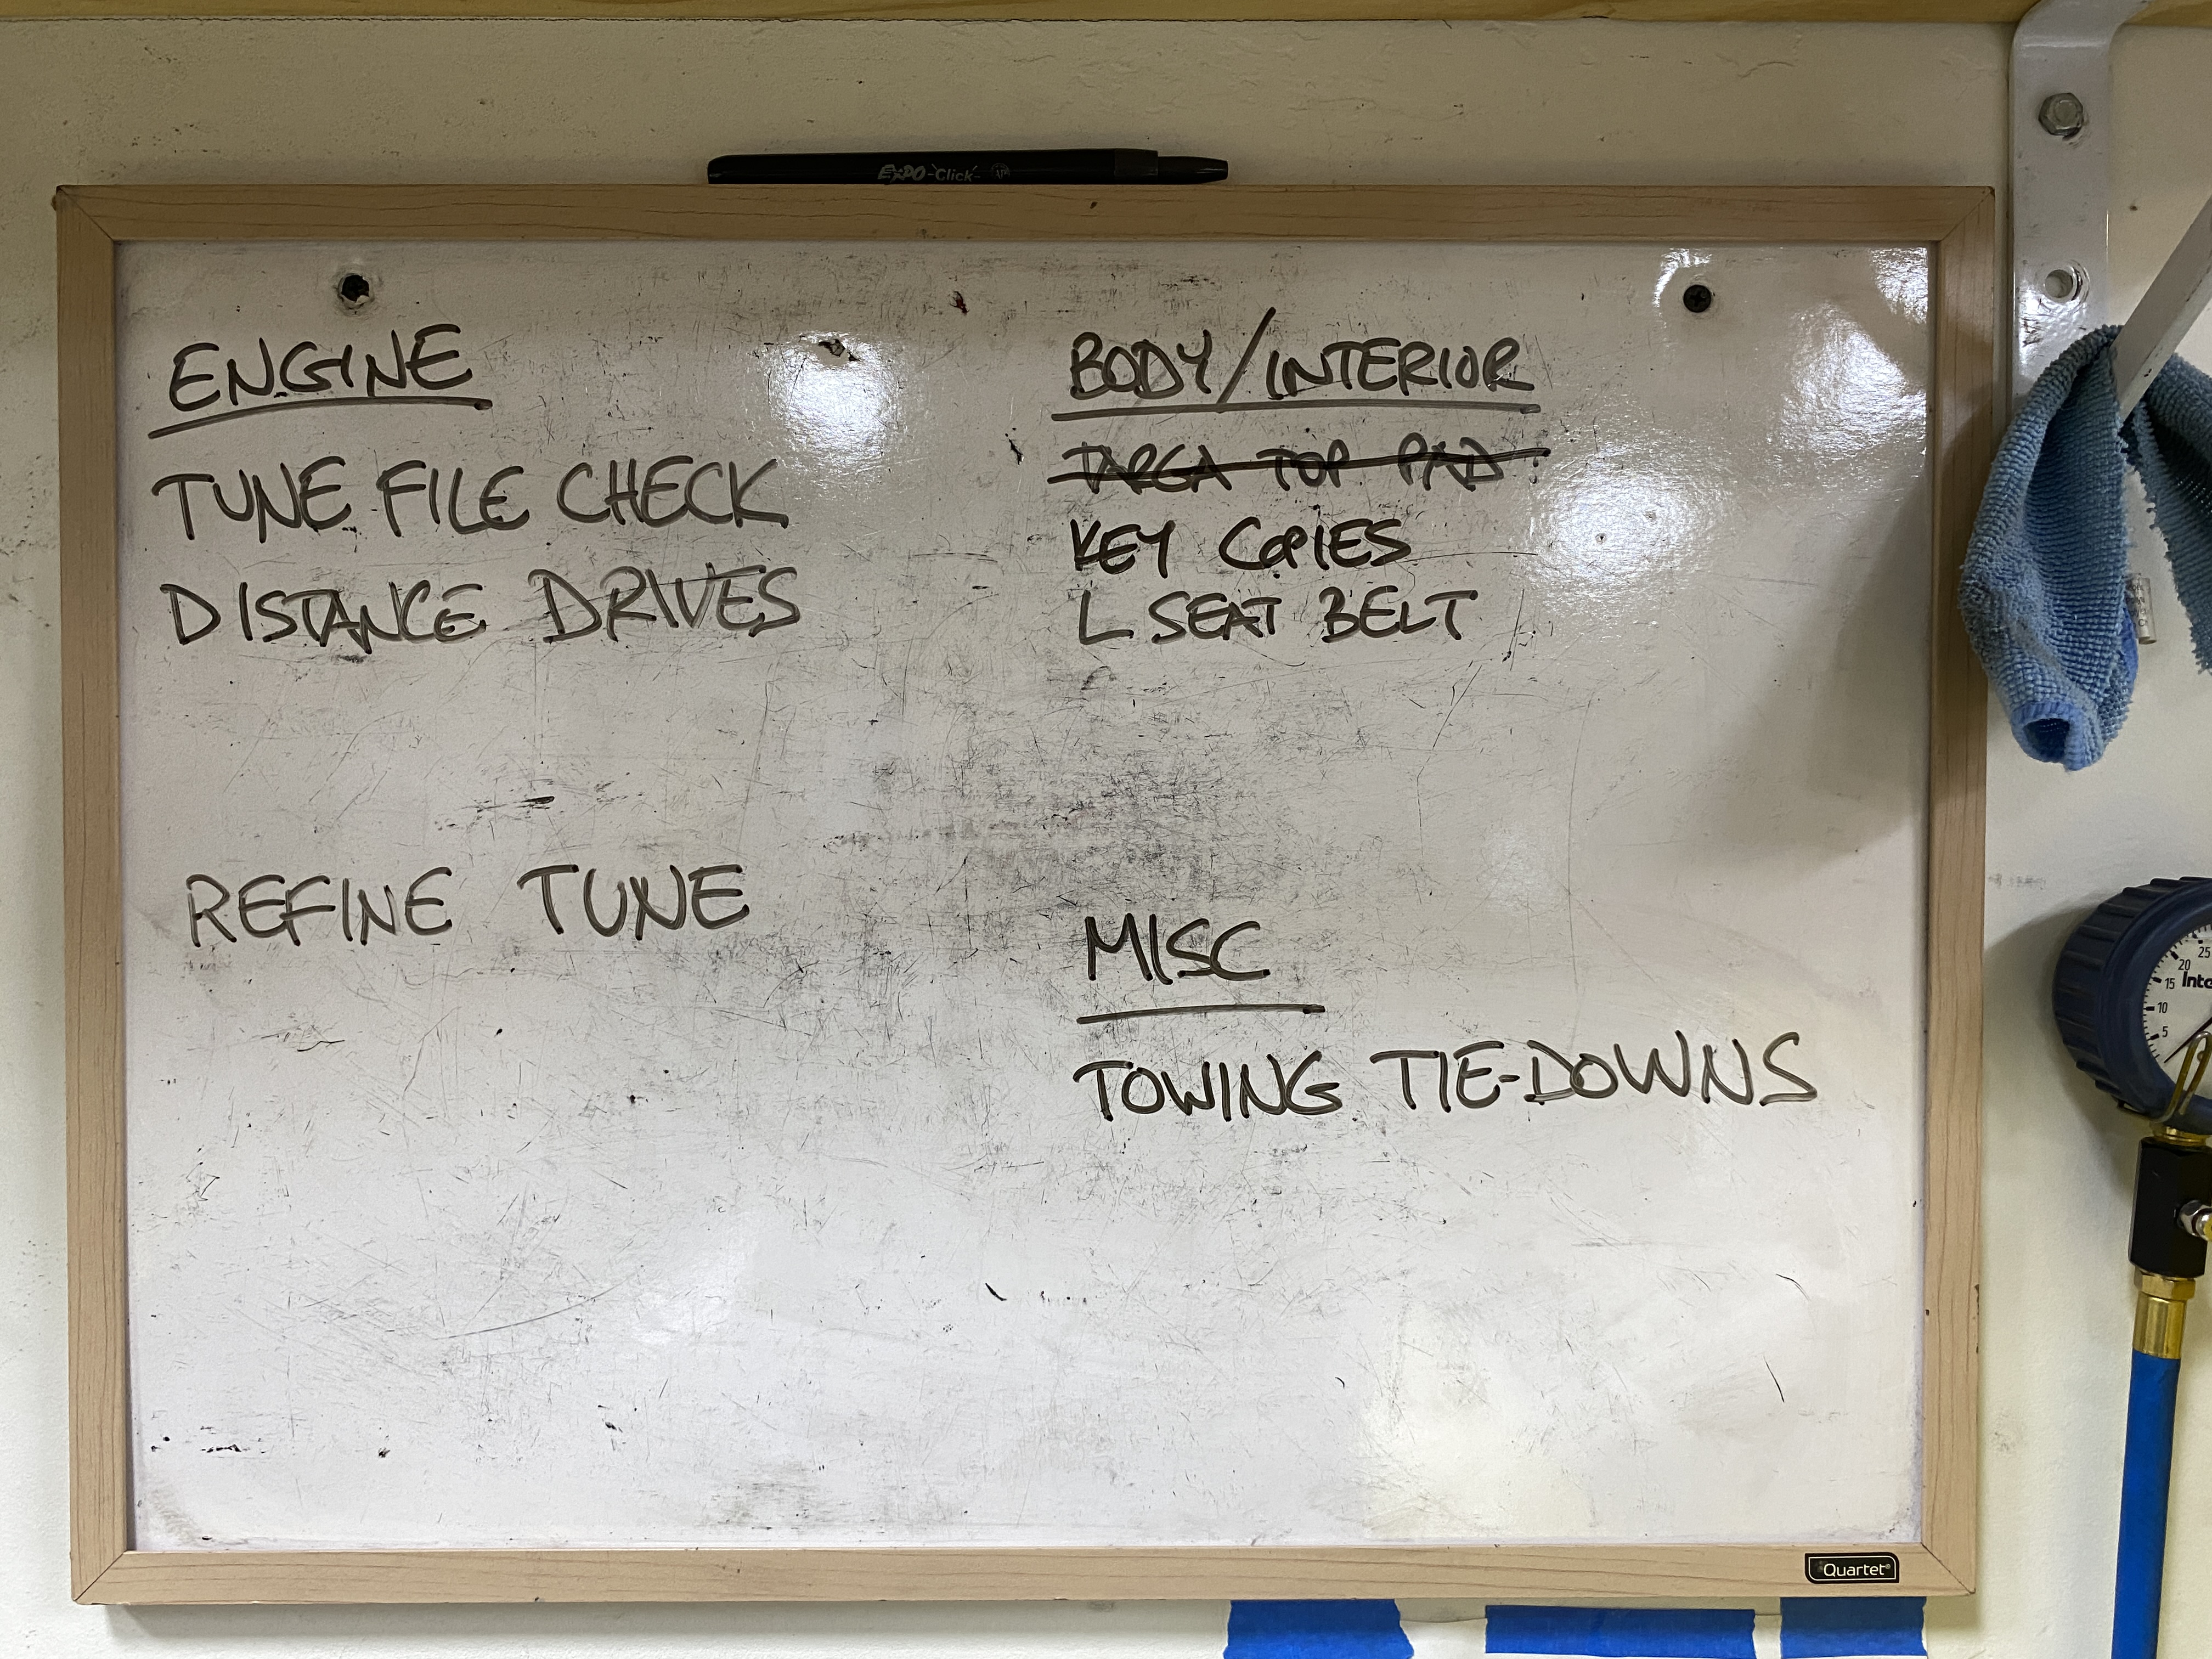 EXPO Click
ENGINE
TUNE FILE CHECK
DISTANCE DRIVES
REFINE TUNE
BODY/INTERIOR
TARGA TOP PAD
KEY COPIES
L SEAT BELT
MISC
TOWING TIE-DOWNS
25
20
15
10
5
Quartet